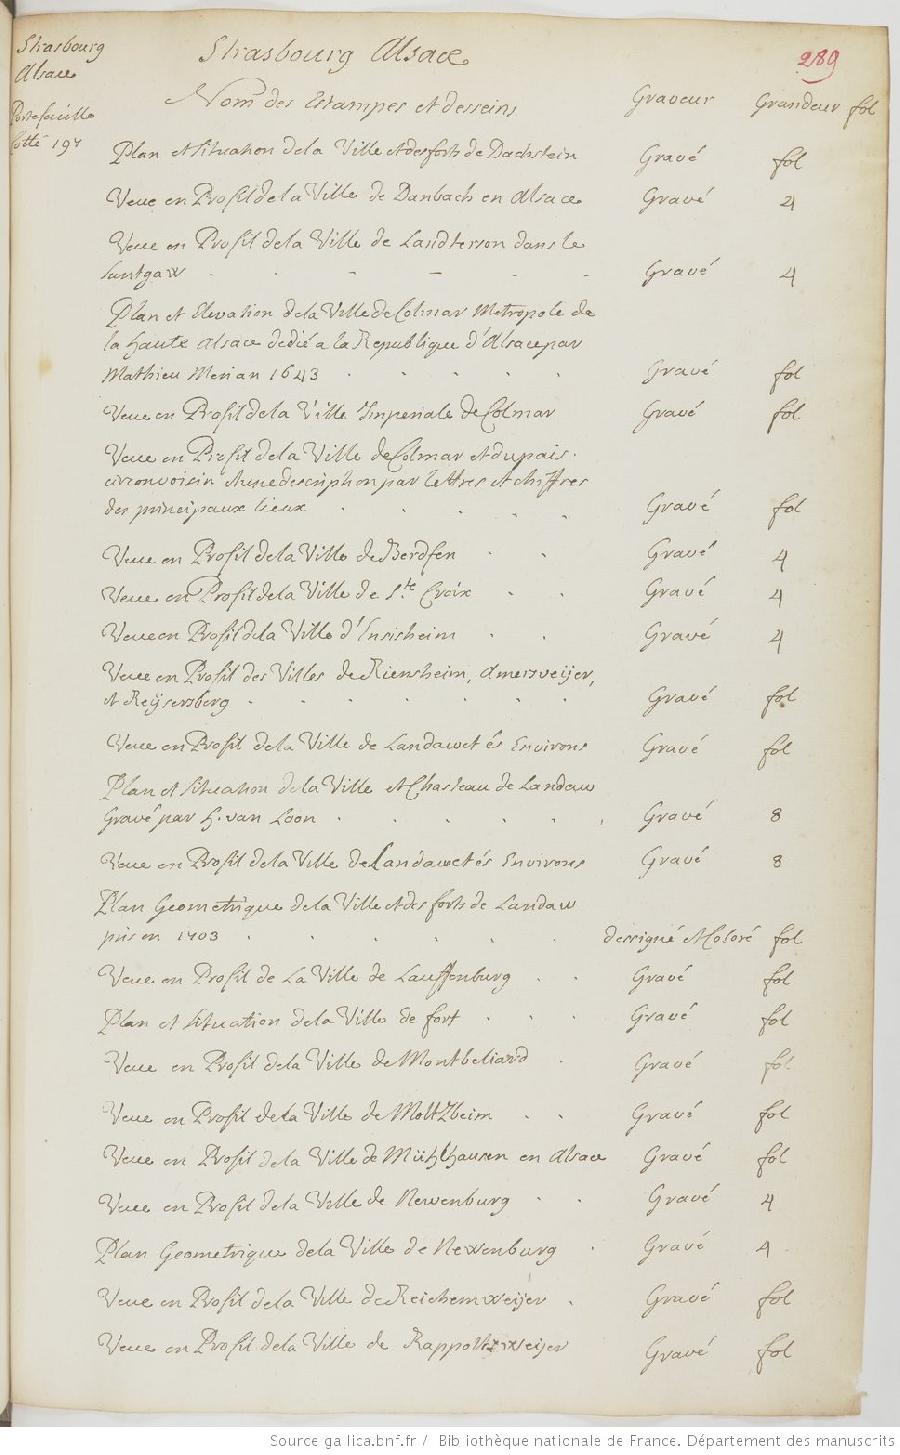 Strasbourg
Alsace
Portefeuille
Cotté 197
Strasbourg Alsace
289
Nom des Estampes et desseins Graveur Grandeur fol
Plan et Situation de la Ville et des forts de Dachstein Gravé fol
Veue en Profil de la Ville de Danbach en Alsace Gravé 4
Veue en Profil de la Ville de Landtsron dans le
Suntgaw Gravé 4
Plan et Elevation de la Ville de Colmar Metropole de
la Haute Alsace dedié a la Republique d'Alsace par
Mathieu Merian 1643 Gravé fol
Veue en Profil de la Ville Imperiale de Colmar Gravé fol
Veue en Profil de la Ville de Colmar et du pais
circonvoisin et une description par lettres et chiffres
des principaux lieux Gravé fol
Veue en Profil de la Ville de Berdfen Gravé 4
Veue en Profil de la Ville de Ste Croix Gravé 4
Veue en Profil de la Ville d'Ensisheim Gravé 4
Veue en Profil des Villes de Kiensheim, Amersveijer,
et Keijsersberg Gravé fol
Veue en Profil de la Ville de Landaw et és Environs Gravé fol
Plan et Situation de la Ville et Chasteau de Landaw
Gravé par H. van Loon Gravé 8
Veue en Profil de la Ville de Landaw et és Environs Gravé 8
Plan Geometrique de la Ville et des forts de Landaw
pris en 1703 dessigné et Coloré fol
Veue en Profil de La Ville de Lauffenburg Gravé fol
Plan et Situation de la Ville de fort Gravé fol
Veue en Profil de la Ville de Montbeliard Gravé fol
Veue en Profil de la Ville de Moltzheim Gravé fol
Veue en Profil de la Ville de Mühlhausen en Alsace Gravé fol
Veue en Profil de la Ville de Newenburg Gravé 4
Plan Geometrique de la Ville de Newenburg Gravé 4
Veue en Profil de la Ville de Reichenweijer Gravé fol
Veue en Profil de la Ville de Rappoltsweijer Gravé fol
Source gallica.bnf.fr / Bibliothèque nationale de France. Département des manuscrits